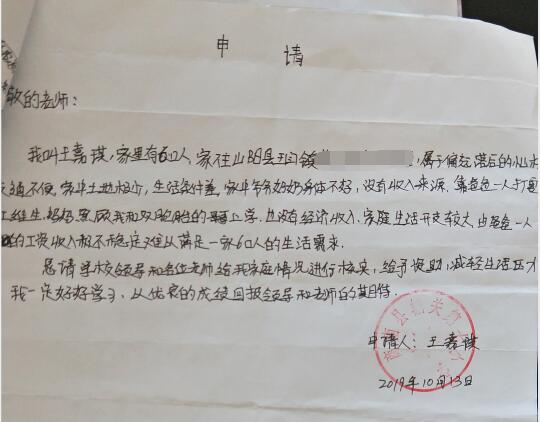 申 请
敬的老师:
我叫王嘉琪,家里有60人,家住山阳县 镇 ,属于偏远滞后的小山
交通不便,家中土地稀少,生活条件差,家中爷爷奶奶身体不好,没有收入来源,靠爸爸一人打
工维生,妈妈照顾我和双胞胎的 上学,也没有经济收入,家庭生活开支较大,由爸爸一人
的工资收入和不稳定难以满足一家60人的生活需求.
恳请学校领导和各位老师给我家庭情况进行核实,给予资助,减轻生活压力
我一定好好学习,从优良的成绩回报领导和老师的期待.
申请人:王嘉琪
2019年10月13日